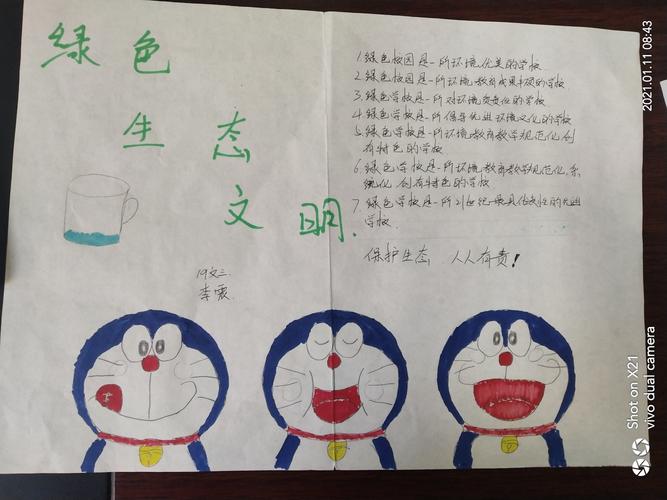 绿色
生态
文明.
1.绿色校园是一所环境优美的学校
2.绿色校园是一所环境教育成果丰硕的学校
3.绿色学校是一所对环境负责任的学校
4.绿色学校是一所倡导优进环境文化的学校
5.绿色学校是一所环境教育教学规范化,创
有特色的学校
6.绿色学校是一所环境教育教学规范化,系
统化,创有特色的学校
7.绿色学校是一所21世纪最具代表性的先进
学校.
保护生态 人人有责!
19文三
李震
2021.01.11 08:43
Shot on X21
vivo dual camera